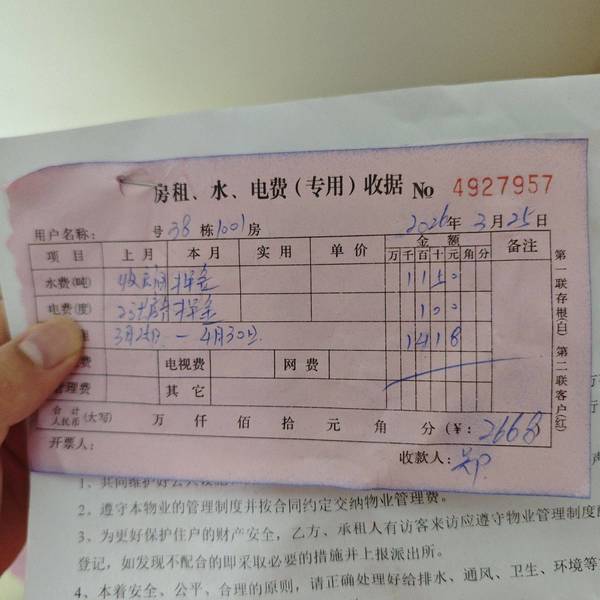 房租、水、电费(专用)收据 No 4927957
用户名称: 号38栋1001房 2026年3月25日
项目 上月 本月 实用 单价 金额 备注
万千百十元角分
水费(吨) 押金 1150
电费(度) 押金 100
租 3月25日—4月30日 1418
费 电视费 网费
管理费 其它
合计人民币(大写) 万 仟 佰 拾 元 角 分(¥: 2668)
开票人: 收款人:
第一联存根(白) 第二联客户(红)
1、共同维护好公共设施
2、遵守本物业的管理制度并按合同约定交纳物业管理费。
3、为更好保护住户的财产安全,乙方、承租人有访客来访应遵守物业管理制度
登记,如发现不配合的即采取必要的措施并上报派出所。
4、本着安全、公平、合理的原则,请正确处理好给排水、通风、卫生、环境等